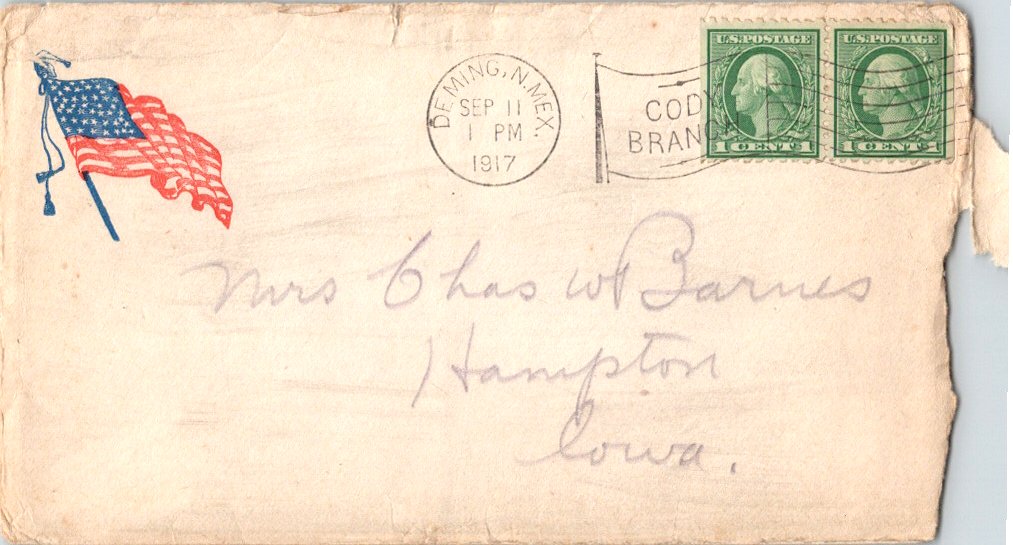 DEMING, N. MEX.
SEP 11
1 PM
1917
CODY
BRANCH
U.S. POSTAGE
1 CENT 1
U.S. POSTAGE
1 CENT 1
Mrs Chas W Barnes
Hampton
Iowa.